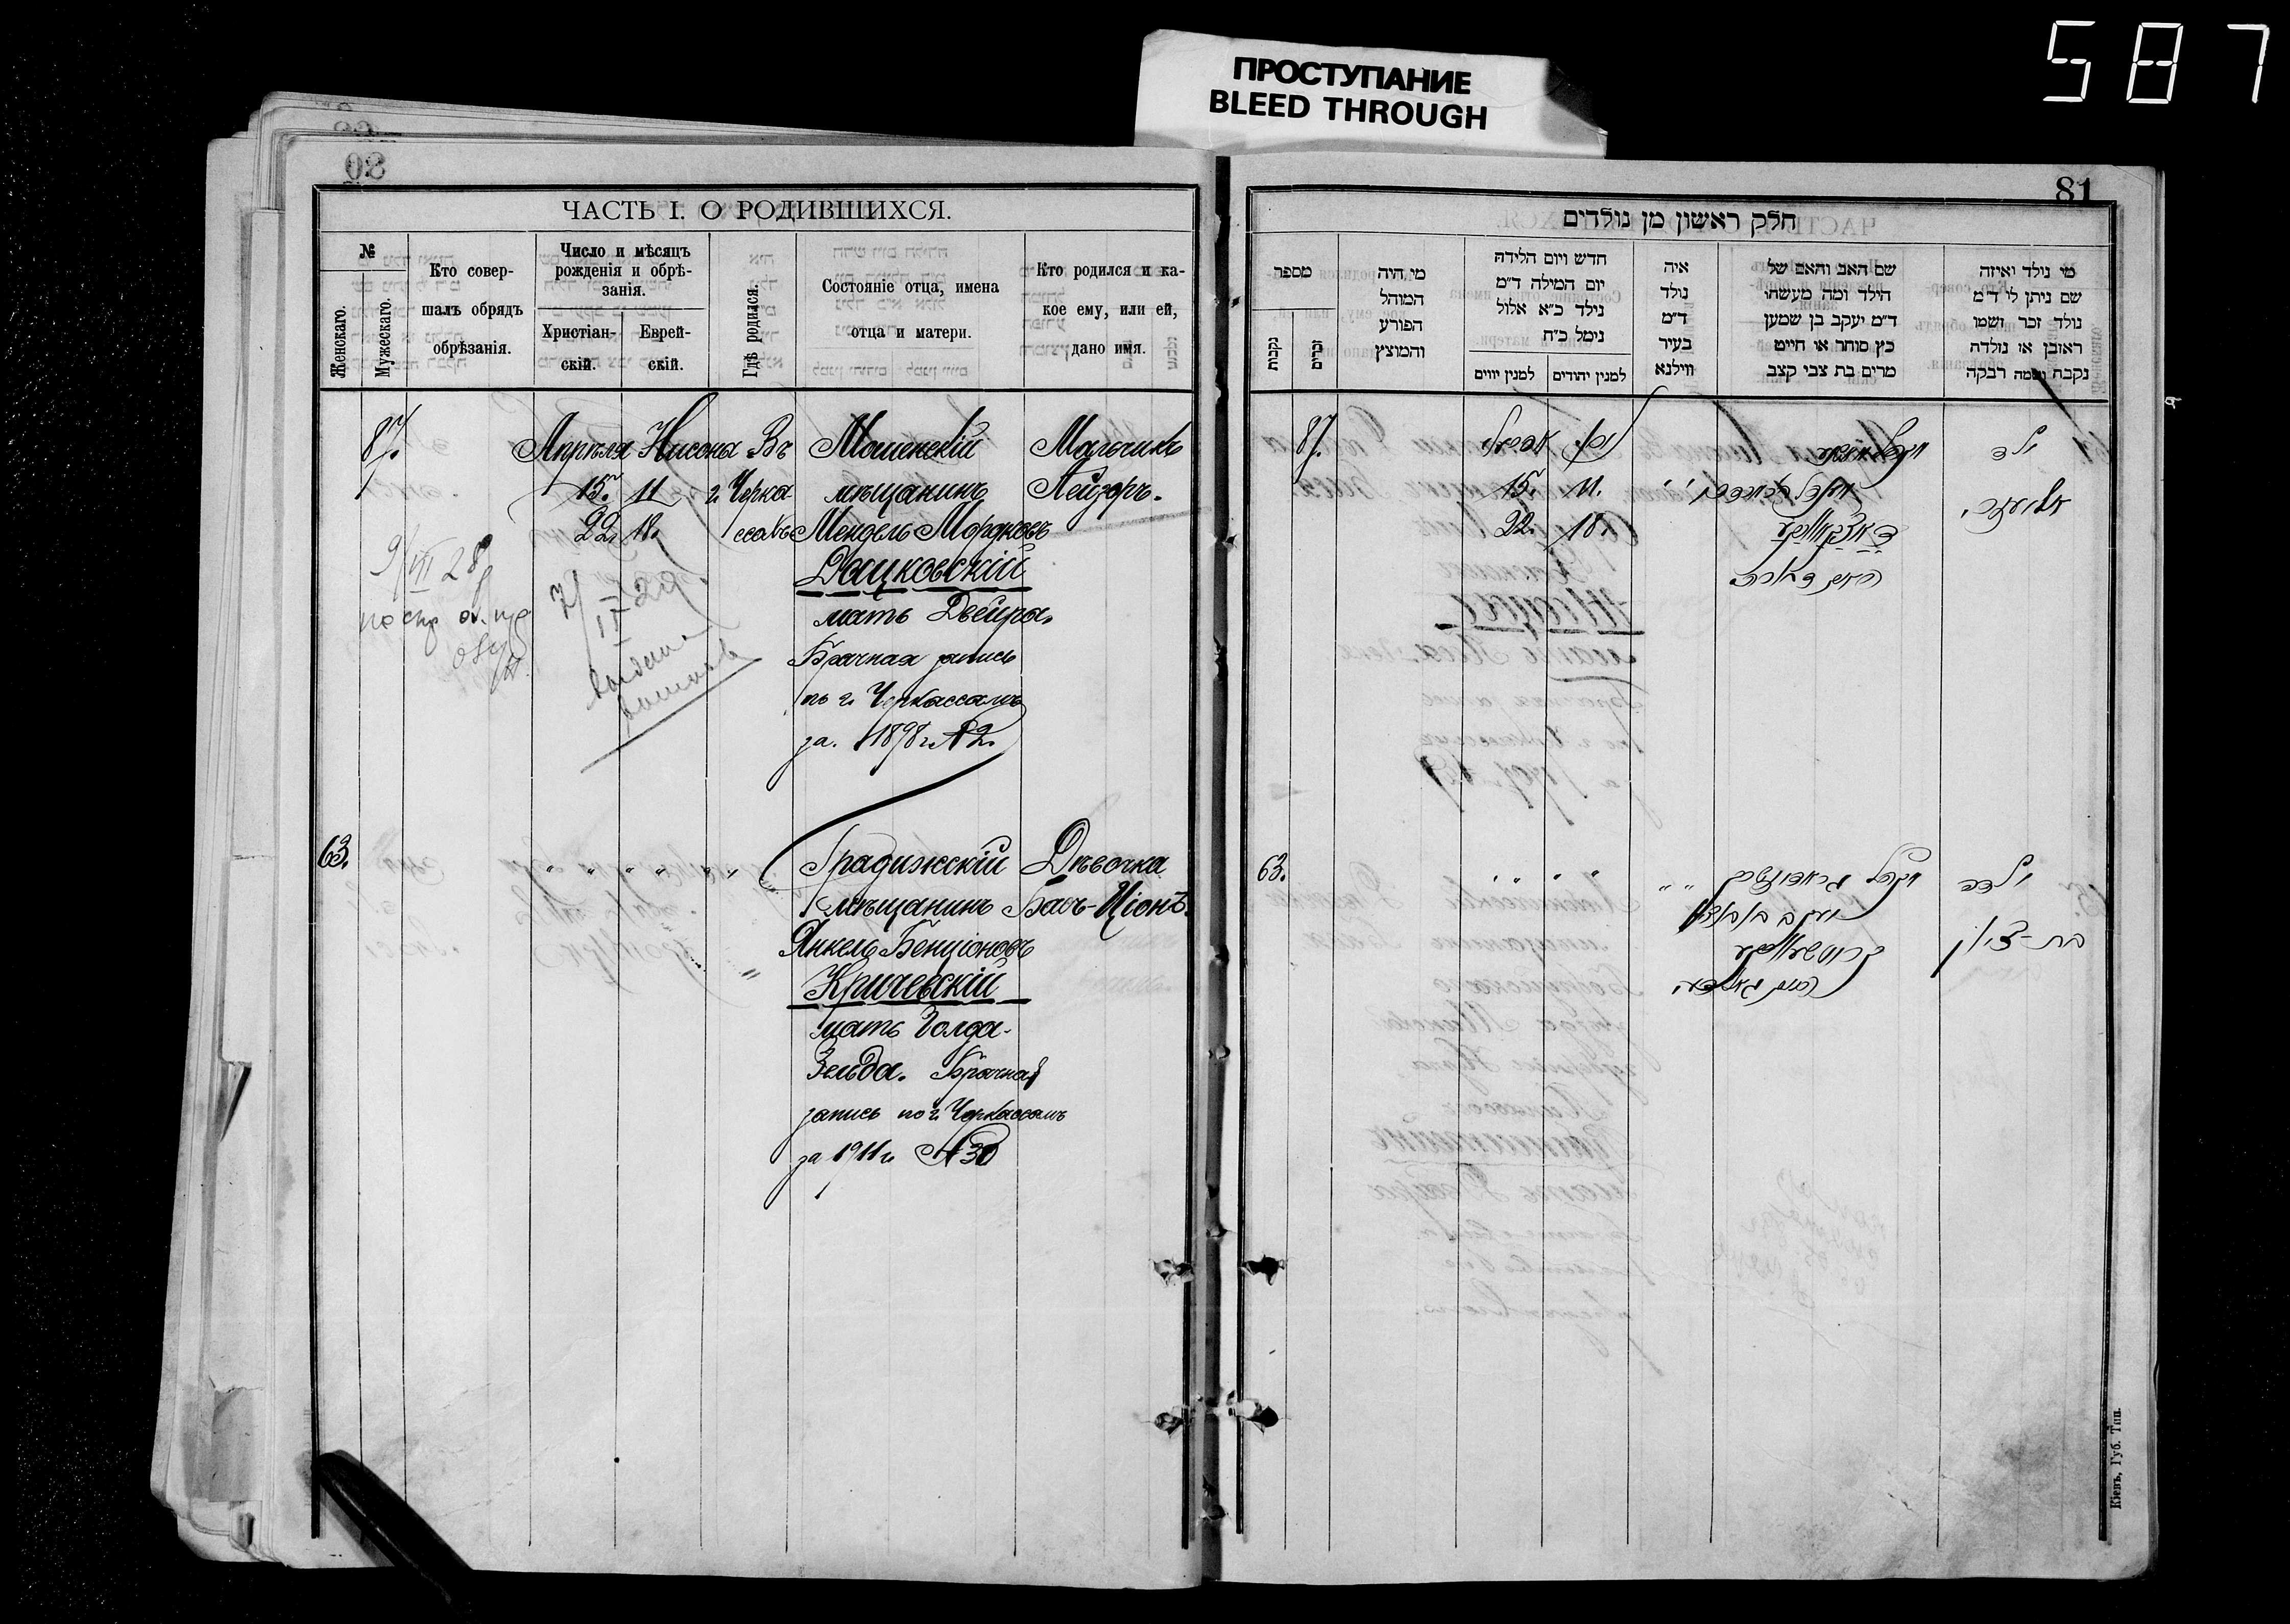 587
ПРОСТУПАНИЕ
BLEED THROUGH
81
ЧАСТЬ I. О РОДИВШИХСЯ.
№
Женскаго.
Мужескаго.
Кто совер-
шалъ обрядъ
обрѣзанія.
Число и мѣсяцъ
рожденія и обрѣ-
занія.
Христіан-
скій.
Еврей-
скій.
Гдѣ родился.
Состояніе отца, имена
отца и матери.
Кто родился и ка-
кое ему, или ей,
дано имя.
87.
Апрѣля Нисона Въ Мошенскій Мальчикъ
15. 11 г. Черка- мѣщанинъ Лейзоръ.
22. 18. ссахъ Мендель Мордковъ
Дацковскій
мать Двейра.
Брачная запись
по г. Черкассамъ
за 1898 г. № 2.
9/III 28
7/II 29
63.
" " " " " Градижскій Дѣвочка
мѣщанинъ Басъ-Ціонъ.
Янкель Бенціоновъ
" Кричевскій
мать Голда-
Зельда. Брачная
запись по г. Черкассамъ
за 1911 г. № 30
חלק ראשון מן נולדים
מי נולד ואיזה
שם ניתן לו ד״מ
נולד זכר ושמו
ראובן או נולדה
נקבה ושמה רבקה
שם האב והאם של
הילד ומה מעשהו
ד״מ יעקב בן שמעון
כץ סוחר או חייט
מרים בת צבי קצב
איה
נולד
ד״מ
בעיר
ווילנא
חדש ויום הלידה
יום המילה ד״מ
נולד כ״א אלול
נימל כ״ח
למנין יהודים
למנין יווים
מי היה
המוהל
הפורע
והמוצץ
מספר
זכרים
נקבות
87.
ניסן אפריל
15. 11.
22. 18.
ילד
אליעזר.
דאצקאווסקי
האם דבורה
63.
" " " "
ילדה
בת-ציון
Кіевъ, Губ. Тип.